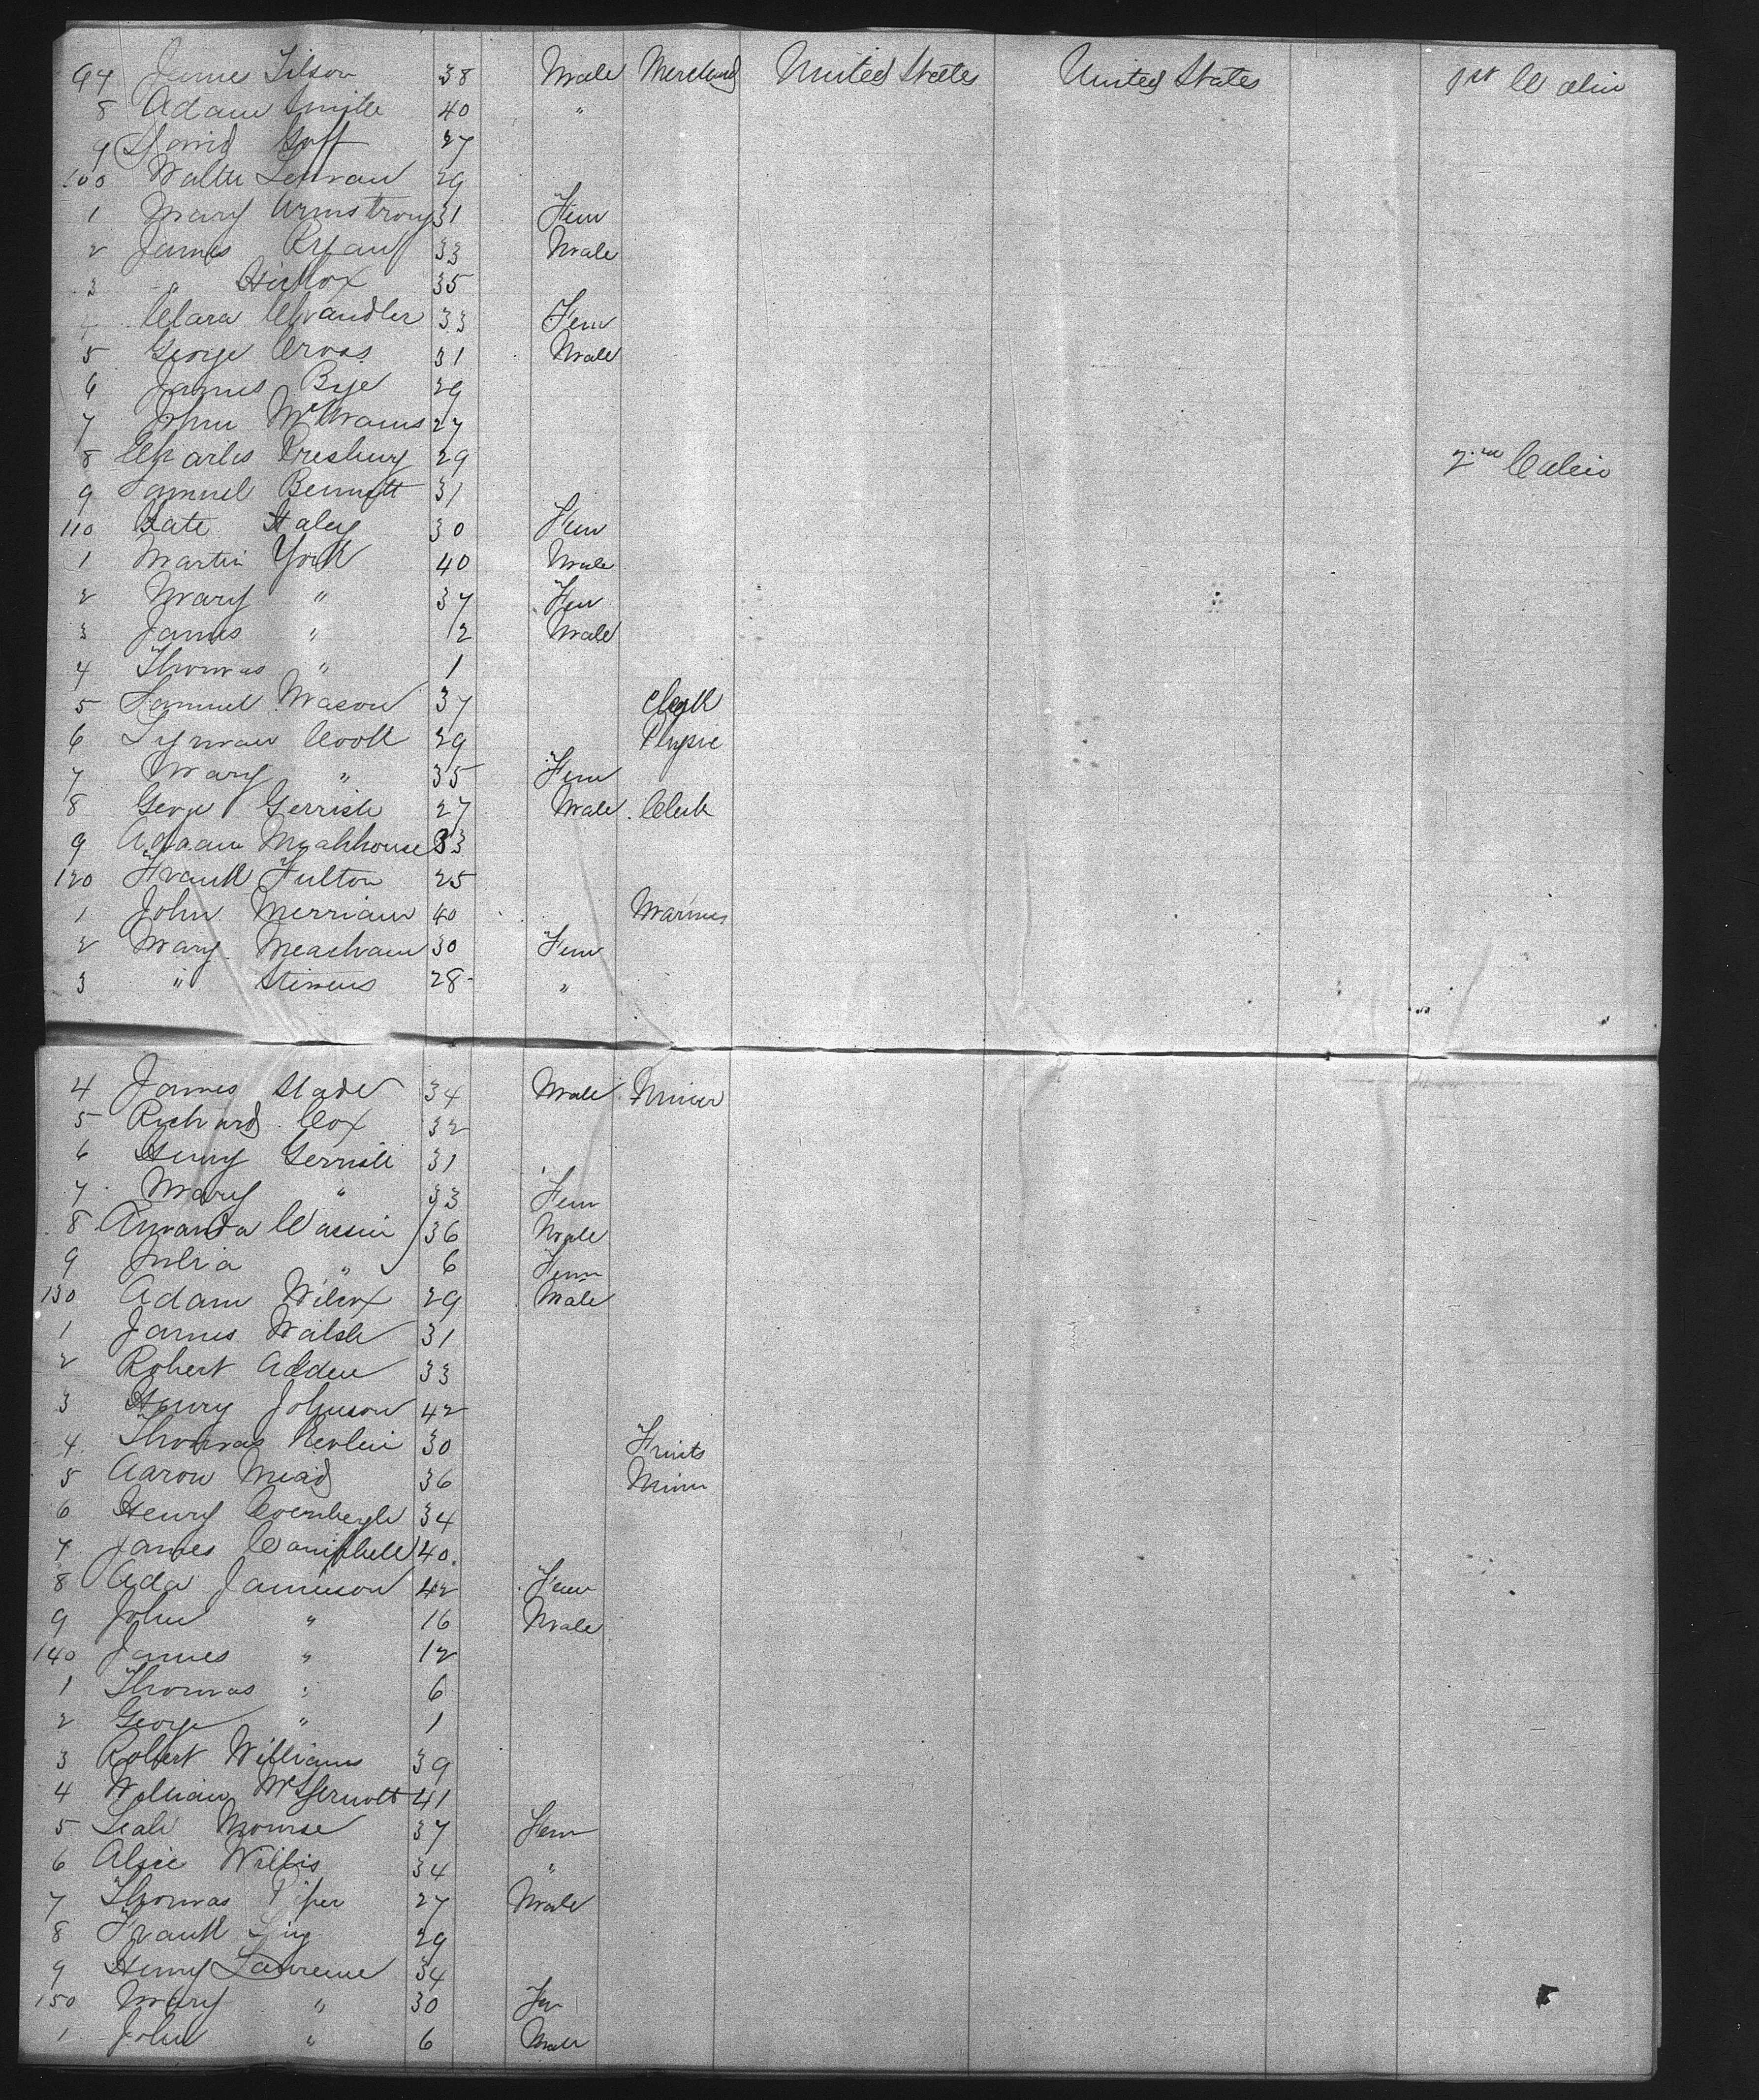 97 James Tilson 38 Male Merchand United States United States 1st Cabin
8 Adam Smith 40 "
9 David Goff 27
100 Walter 29
1 Mary Armstrong 31 Fem
2 James Ryan 33 Male
3 " Hickox 35
4 Clara Chandler 33 Fem
5 George Cross 31 Male
6 James Bye 29
7 John 27
8 Charles Presbury 29 2nd Cabin
9 Samuel Bennett 31
110 Kate Haley 30 Fem
1 Martin York 40 Male
2 Mary " 37 Fem
3 James " 12 Male
4 Thomas " 1
5 Samuel Mason 37 Clerk
6 Lyman Cook 29 Physic
7 Mary " 35 Fem
8 George Gerrish 27 Male Clerk
9 Adam 33
120 Frank Fulton 25
1 John Merriam 40 Marines
2 Mary Meacham 30 Fem
3 " Stevens 28 "
4 James Slade 34 Male Miner
5 Richard Cox 32
6 Henry Gerrish 31
7 Mary " 33 Fem
8 Amanda Cassin 36 Male
9 Julia " 6 Fem
130 Adam Wilcox 29 Male
1 James Walsh 31
2 Robert Alden 33
3 Henry Johnson 42
4 Thomas 30 Fruits
5 Aaron Mead 36 Miner
6 Henry 34
7 James Campbell 40
8 Ada Jamieson 42 Fem
9 John " 16 Male
140 James " 12
1 Thomas " 6
2 George " 1
3 Robert Williams 39
4 William McDermott 41
5 Leah Monroe 37 Fem
6 Alsie Willis 34 "
7 Thomas Piper 27 Male
8 Frank 29
9 Henry Lawrence 34
150 Mary " 30 Fem
1 John " 6 Male